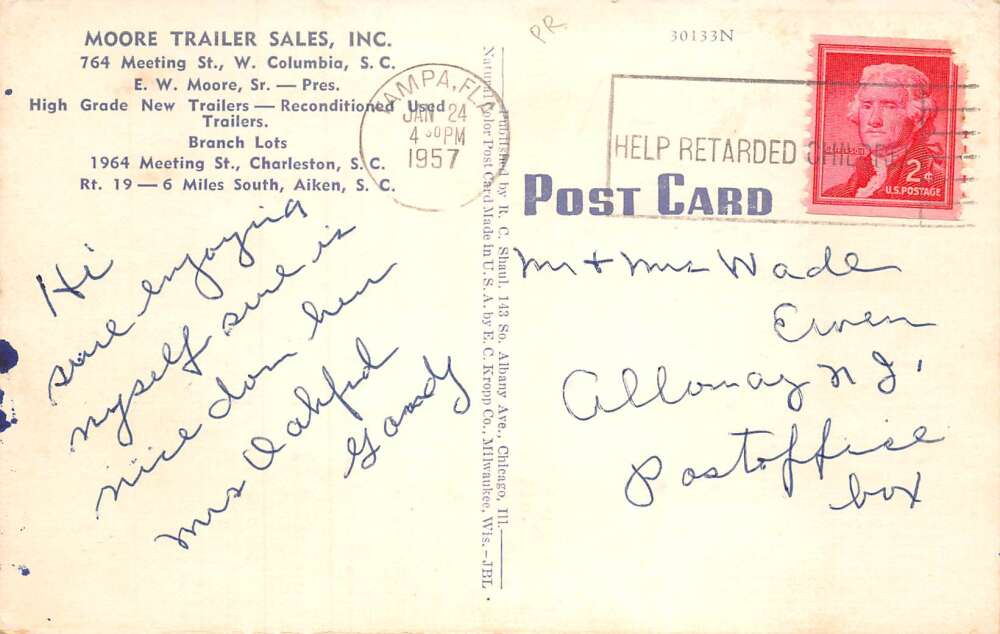 MOORE TRAILER SALES, INC.
764 Meeting St., W. Columbia, S. C.
E. W. Moore, Sr. — Pres.
High Grade New Trailers — Reconditioned Used
Trailers.
Branch Lots
1964 Meeting St., Charleston, S. C.
Rt. 19 — 6 Miles South, Aiken, S. C.
Hi
sure enjoying
myself sure is
nice down here
Mrs Oakford
Gandy
Published by R. C. Shaul, 143 So. Albany Ave., Chicago, Ill.
Natural Color Post Card Made in U. S. A. by E. C. Kropp Co., Milwaukee, Wis. — JBL
PR
30133N
TAMPA, FLA
JAN 24
4 30 PM
1957
HELP RETARDED CHILDREN
2¢
U.S. POSTAGE
POST CARD
Mr + Mrs Wade
Ewen
Alloway N J
Postoffice
box